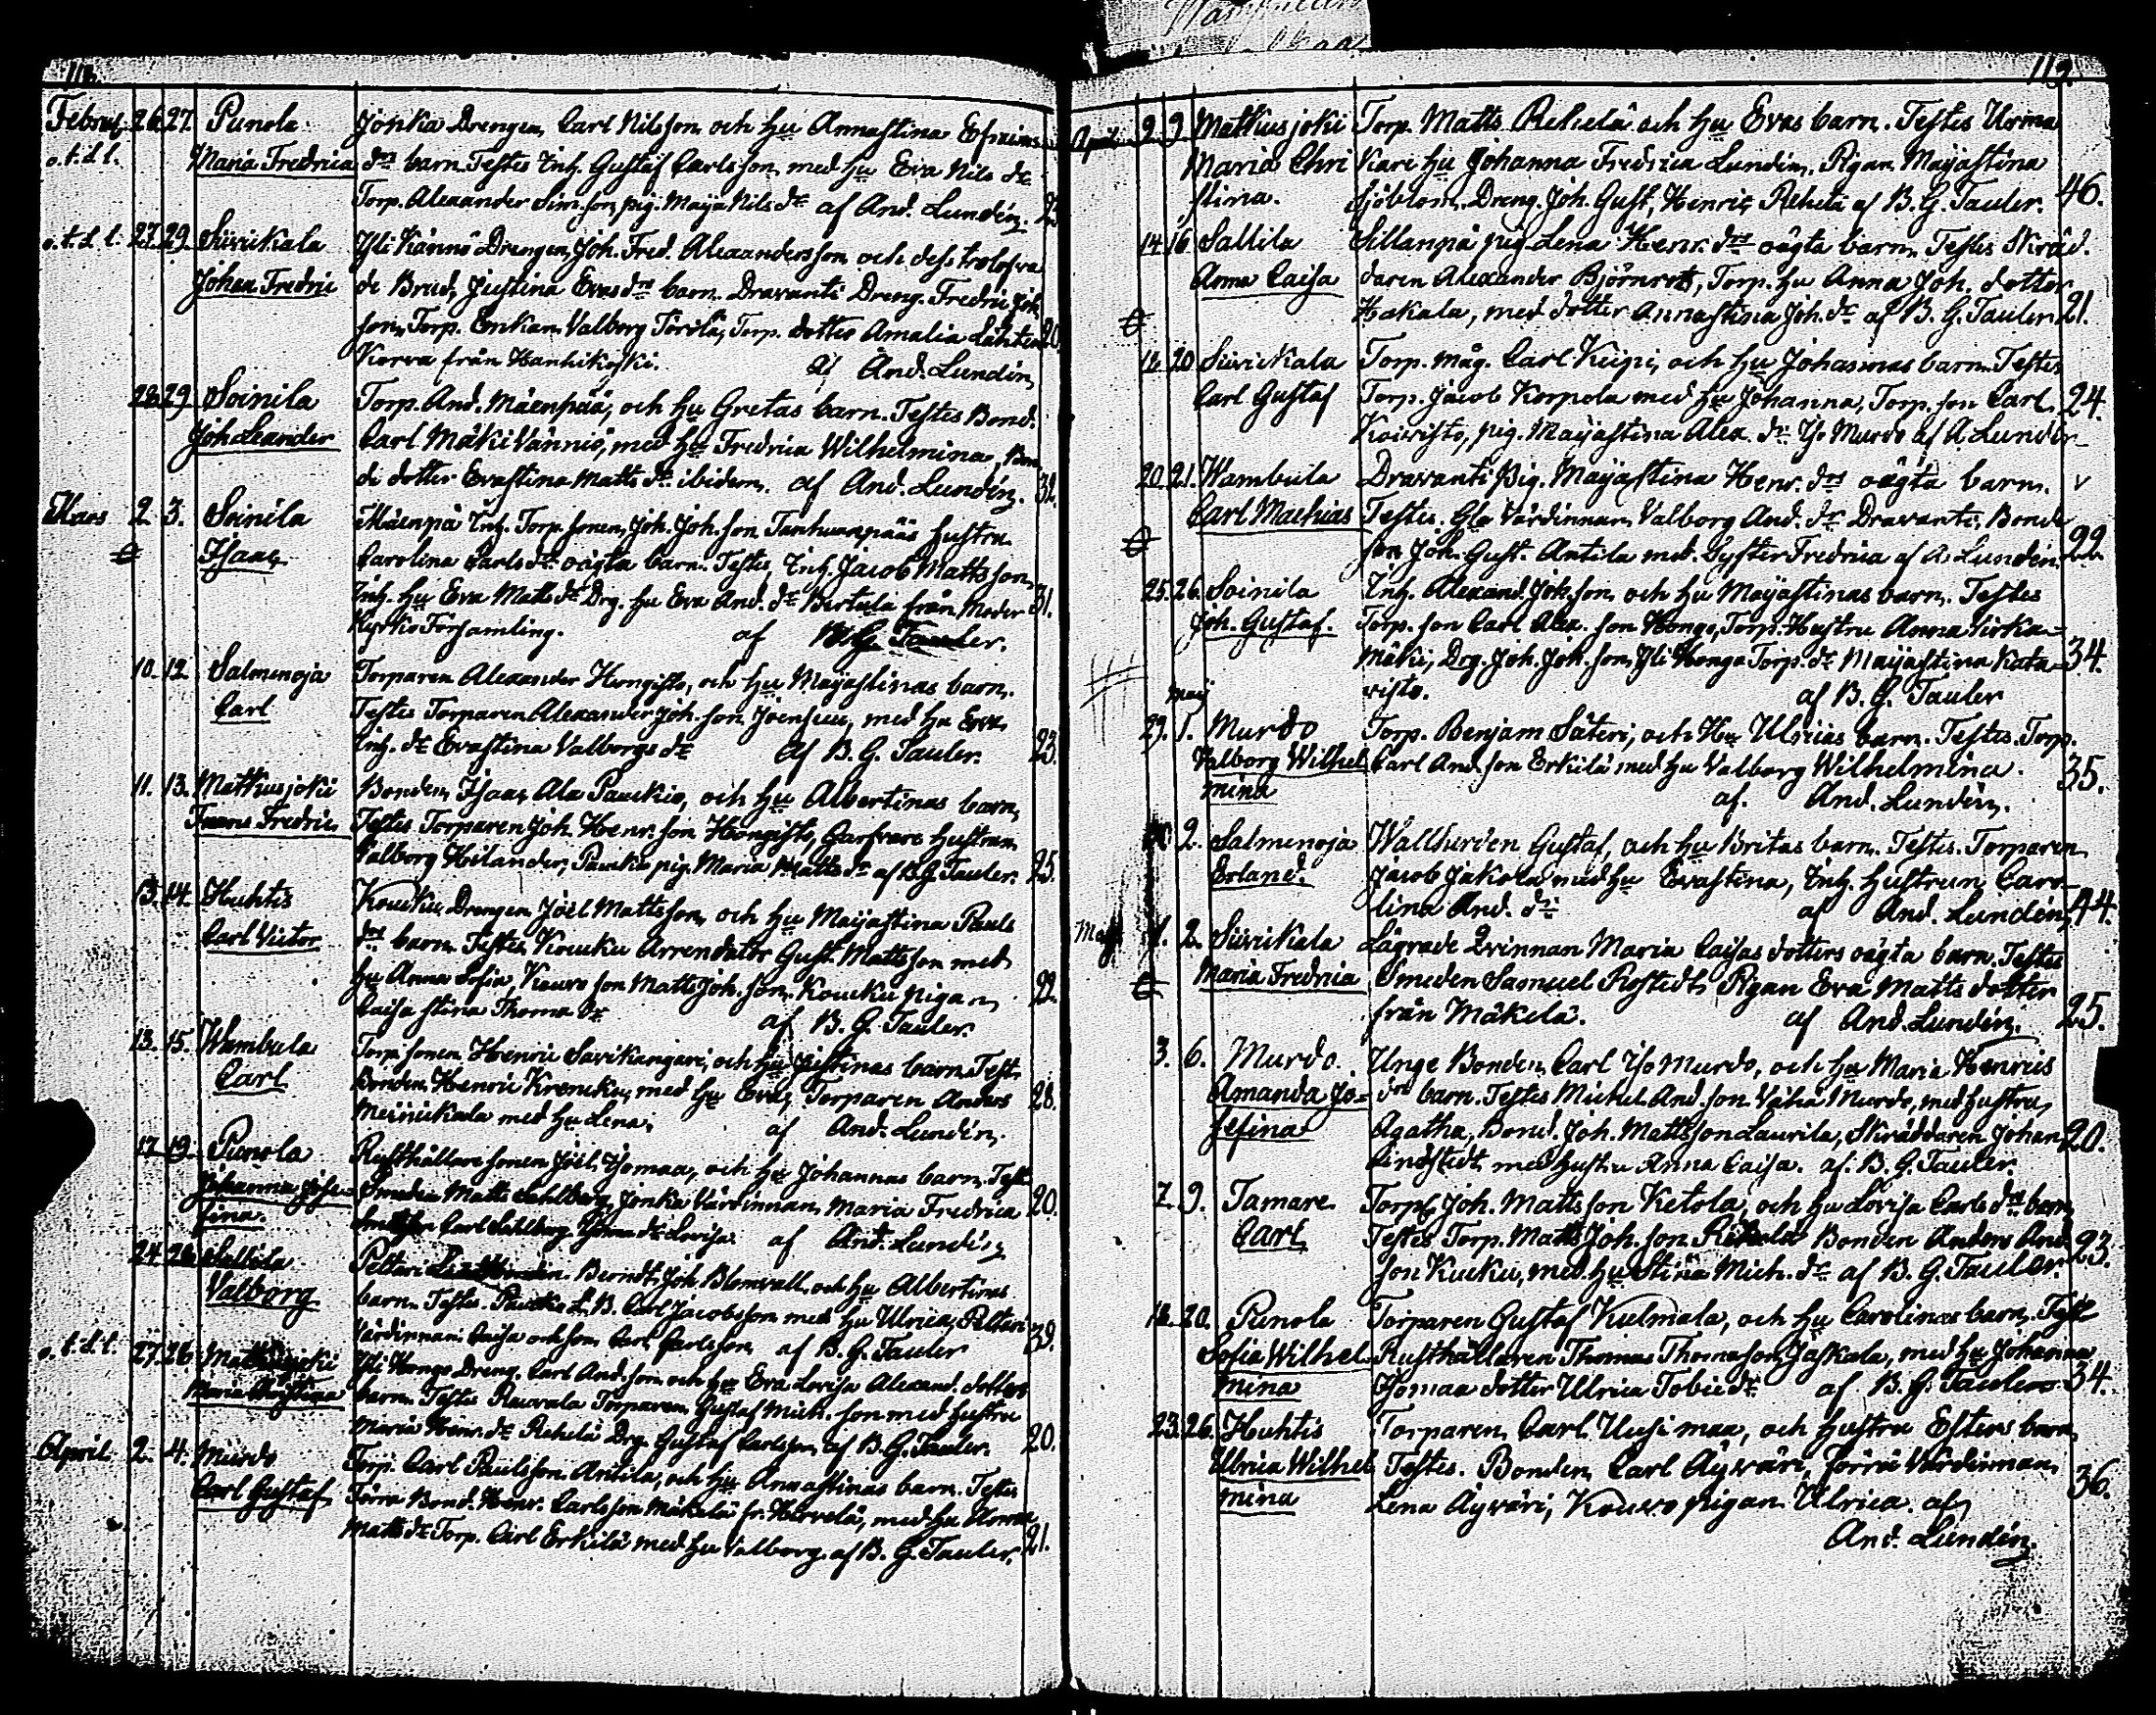 Februarj 26. 27. Punola Jonka Drengen Carl Nilsson och Hu Annastina Efraims
o.t.d.l. Maria Fredrica dr barn. Testes Inh. Gustaf Carlsson med hu Eva Nils dr
Torp. Alexander Sim. son, pig. Maija Nils dr af And. Lundén.
o.t.d.l. 27. 29. Siivikala Yli Kännö Drengen Joh. Fred. Alexandersson och dess trolofva
Johan Fredric de Brud, Justina Evas dr barn. Dravanti Dreng. Fredric Joh.
son, Torp. Enkan Valborg Törilä, Torp. dotter Amalia Lähten 20.
Korva från Hanhikoski. af And. Lundén
28. 29. Soinila Torp. And. Mäenpää, och hu Gretas barn. Testes Bond.
Joh. Leander Carl Mäki Vänniö, med hu Fredrica Wilhelmina,
de dotter Evastina Matts dr ibidem. af And. Lundén. 32.
Mars 2. 3. Soinila Mäenpä Inh. Torp. sonen, Joh. Joh. son Tanhuanpääs hustru
Isaac Carolina Carls dr oägta barn. Testes, Inh. Jacob Mattsson,
Inh. hu Eva Matts dr Drg. hu Eva And. dr Bertula från Moder 31.
Kyrkio Församling. af B. G. Tauler.
10. 12. Salmenoja Torparen Alexander Hongisto, och hu Maijastinas barn.
Carl Testes Torparen Alexander Joh. son Joensuu, med hu Eva
Inh. dr Evastina Valborgs dr af B. G. Tauler. 23.
11. 13. Matkusjoki Bonden, Isaac Ala Pauckio, och hu Albertinas barn,
Frans Fredric Testes Torparen Joh. Henr. son Hongisto, Garfvare hustrun
Valborg Hilander, Pauckio pig. Maria Matts dr af B. G. Tauler. 25.
13. 14. Huhtis Koucku Drengen Joël Mattsson och hu Maijastina Pauls
Carl Victor dr barn. Testes Koucku Arrendator Gust. Mattsson med
hu Anna Sofia, Kouvo son Matts Joh. son. Koucku pigan 22.
Caisa stina Thoma dr af B. G. Tauler.
13. 15. Wambula Torp. sonen Henric Savikangari, och hu Justinas barn. Test.
Carl Bonden Henric Krencku, med hu Eva, Torparen Anders 28.
Meinikkala med hu Lena. af And. Lundén.
17. 19. Punola Rusthållare sonen Joël Isomaa, och hu Johannas barn. Test.
Johanna Jose- Smeden Matts Sahlberg, Jonka Värdinnan Maria Fredrica 20.
fina. Carl Sahlberg Isomaa dr Lovisa. af And. Lundén
24. 26. Sallila Peltari Berndt Joh. Blomvall, och hu Albertinas
Valborg barn. Testes. Paucko L. B. Carl Jacobsson med hu Ulrica, Peltari
Värdinnan Caisa och son Carl Carlsson af B. G. Tauler 39.
o.t.d.l. 27. 28. Matkusjoki Yli Honge Dreng. Carl And. son och hu Eva Lovisa Alexand. dotters
Maria Christina barn. Testes Reuvala Torparen Gustaf Mich. son med hustru
Maria Henr. dr Rehelä Drg. Gustaf Carlsson af B. G. Tauler. 20.
April 2. 4. Murdo Torp. Carl Paulsson Antila, och hu Annastinas barn. Testes
Carl Gustaf Förra Bond. Henr. Carlsson Mäkelä fr. Hervelä, med hu Anna
Matts dr Torp. Carl Erkilä med hu Valborg. af B. G. Tauler. 21.
113.
April 9. 9. Matkusjoki Torp. Matts Rehelä och hu Evas barn. Testes Urma
Maria Chri Kari hu Johanna Fredrica Lundén, Pigan Maijastina
stina. Sjöblom, Dreng. Joh. Gust. Henric Rehelä af B. G. Tauler. 46.
14. 16. Sallila Sillanpä pig. Lena Henr. drs oägta barn. Testes Skräd.
Anna Caisa daren Alexander Björnrot, Torp. hu Anna Joh. dotter
Hakala, med dotter Annastina Joh. dr af B. G. Tauler 21.
20 Siivikala Torp. Måg. Carl Kiipi, och hu Johannas barn. Testes
Carl Gustaf Torp. Jacob Korpela med hu Johanna, Torp. son Carl 24.
Koivisto, pig. Maijastina Alex. dr Iso Murdo af A Lundén
20. 21. Wambula Dravanti Pig. Maijastina Henr. drs oägta barn.
Carl Mathias Testes. Gla Värdinnan Valborg And. dr Dravanti, Bonde
son Joh. Gust. Antila med Syster Fredrica af A. Lundén. 22.
25. 26. Soinila Inh. Alexand. Joh. son och hu Maijastinas barn. Testes
Joh. Gustaf. Torp. son Carl Alex. son Honge, Torp. Hustru Anna Sirka-
mäki, Drg. Joh. Joh. son Yli Honge Torp. dr Maijastina Kata- 34.
Maij risto. af B. G. Tauler
29. 1. Murdo Torp. Benjam Säteri, och Hu Ulricas barn. Testes. Torp.
Valborg Wilhel Carl And. son Erkilä med hu Valborg Wilhelmina. 35.
mina af. And. Lundén.
2. Salmenoja Wallherden Gustaf, och hu Britas barn. Testes. Torparen
Erland. Jacob Jakola med hu Evastina, Inh. hustrun Caro-
lina And. dr af And. Lundén, 44.
Maji 1. 2. Siivikala Lägrade Qvinnan Maria Caisas dotters oägta barn. Testes
Maria Fredrica Smeden Samuel Rostedt, Pigan Eva Matts dotter
från Mäkelä. af And. Lundén. 25.
3. 6. Murdo. Unge Bonden Carl Iso Murdo, och hu Maria Henrics
Amanda Jo- drs barn. Testes Michel And. son Vähä Murdo, med hustru
sefina Agatha, Bond. Joh. Mattsson Laurila, Skräddaren Johan 20.
Lindstedt med hustru Anna Caisa. af. B. G. Tauler.
7. 9. Tamare Torp. Joh. Mattsson Ketola, och hu Lovisa Carls drs barn
Carl Testes Torp. Matts Joh. son Rehelä Bonden Anders And.
son Kucku, med hu Stina Mich. dr af B. G. Tauler. 23.
18. 20. Punola Torparen Gustaf Kulmala, och hu Carolinas barn, Test
Sofia Wilhel- Rusthållaren Thomas Thomasson Jaskala, med hu Johanna
mina Isomaa dotter Ulrica Tobie dr af B. G. Tauler 34.
23. 26. Huhtis Torparen Carl Uusi maa, och hustru Esters barn
Ulrica Wilhel Testes. Bonden Carl Äyräri, Förra Värdinnan
mina Lena Äyräri, Kouvo pigan Ulrica. af 36.
And. Lundén.